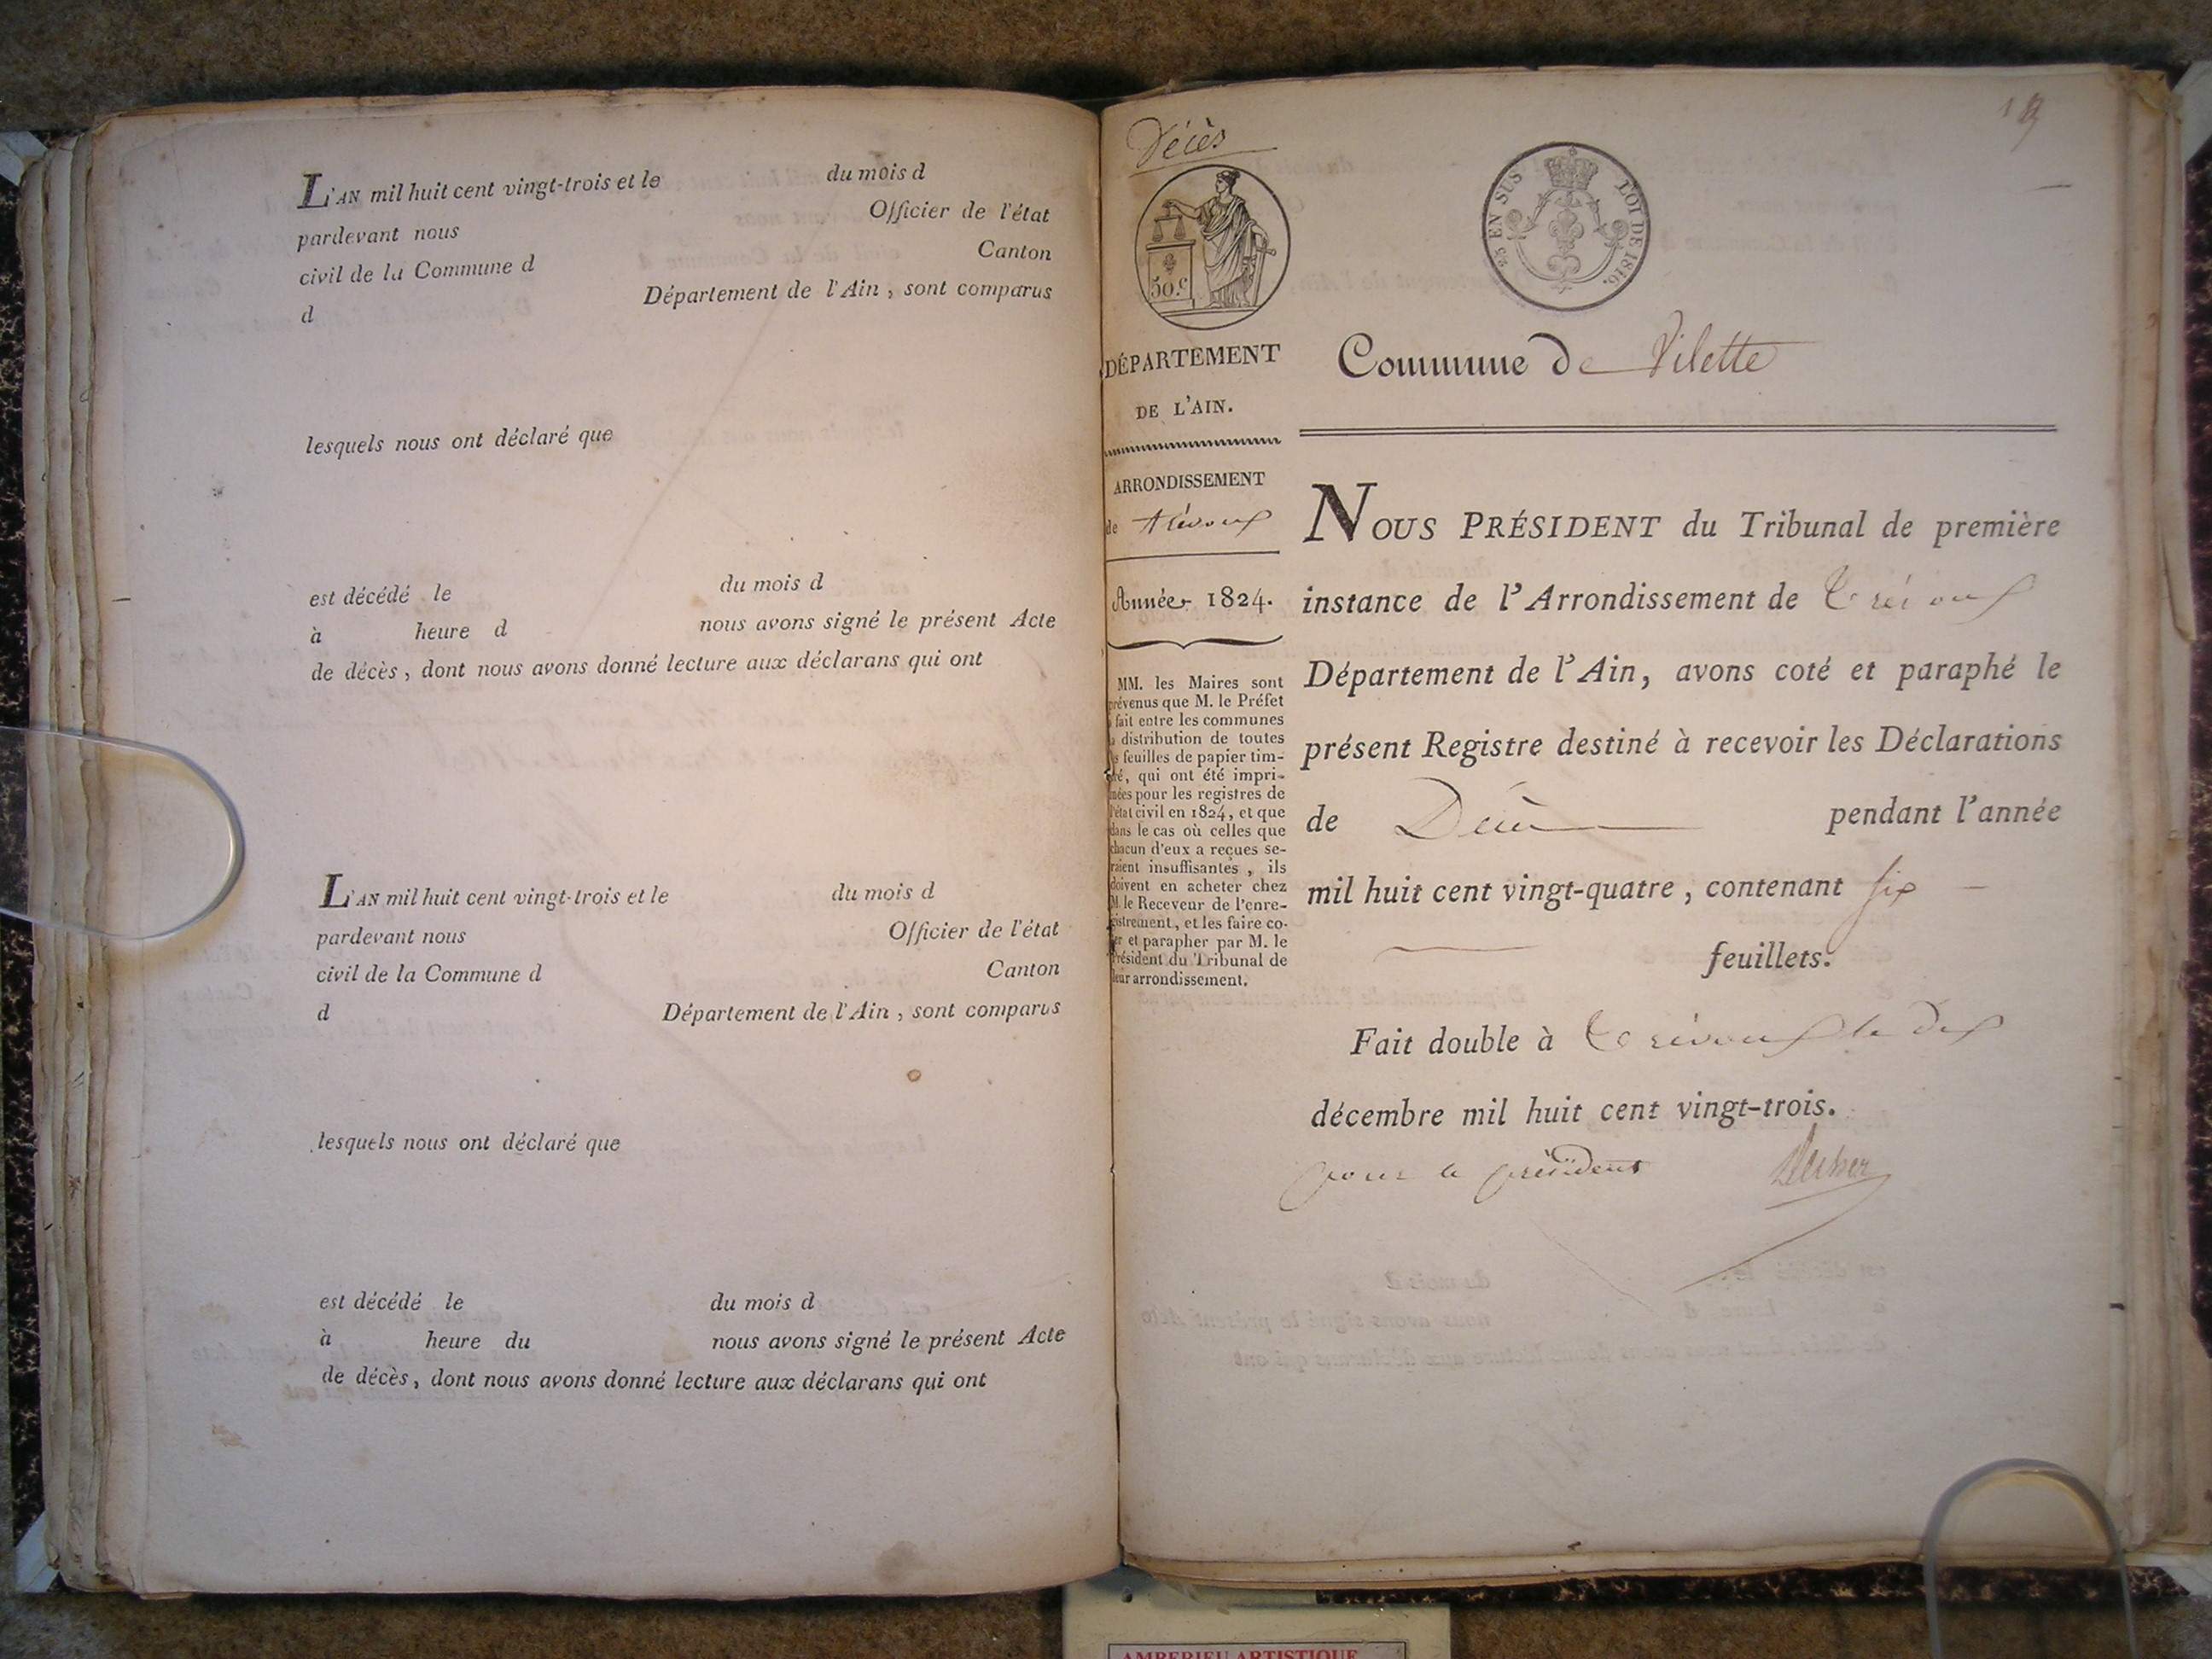 L'AN mil huit cent vingt-trois et le du mois d
pardevant nous Officier de l'état
civil de la Commune d Canton
d Département de l'Ain, sont comparus
lesquels nous ont déclaré que
est décédé le du mois d
à heure d nous avons signé le présent Acte
de décès, dont nous avons donné lecture aux déclarans qui ont
L'AN mil huit cent vingt-trois et le du mois d
pardevant nous Officier de l'état
civil de la Commune d Canton
d Département de l'Ain, sont comparus
lesquels nous ont déclaré que
est décédé le du mois d
à heure du nous avons signé le présent Acte
de décès, dont nous avons donné lecture aux déclarans qui ont
Décès
50.c
EN SUS LOI DE 1816.
DÉPARTEMENT
DE L'AIN.
ARRONDISSEMENT
de Trévoux
Année 1824.
MM. les Maires sont
prévenus que M. le Préfet
a fait entre les communes
la distribution de toutes
les feuilles de papier tim-
bré, qui ont été impri-
mées pour les registres de
l'état civil en 1824, et que
dans le cas où celles que
chacun d'eux a reçues se-
raient insuffisantes, ils
doivent en acheter chez
M. le Receveur de l'enre-
gistrement, et les faire co-
ter et parapher par M. le
Président du Tribunal de
leur arrondissement.
Commune de Vilette
NOUS PRÉSIDENT du Tribunal de première
instance de l'Arrondissement de Trévoux
Département de l'Ain, avons coté et paraphé le
présent Registre destiné à recevoir les Déclarations
de Décès pendant l'année
mil huit cent vingt-quatre, contenant six
feuillets.
Fait double à Trévoux le dix
décembre mil huit cent vingt-trois.
pour le président
AMBERIEU ARTISTIQUE